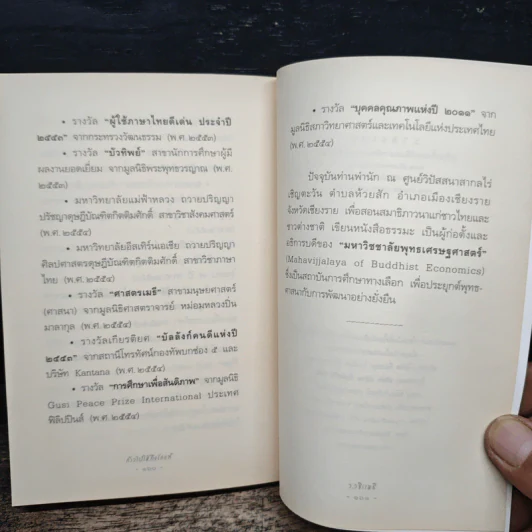 • รางวัล "ผู้ใช้ภาษาไทยดีเด่น ประจำปี
๒๕๕๓" จากกระทรวงวัฒนธรรม (พ.ศ.๒๕๕๓)
• รางวัล "บัวทิพย์" สาขานักการศึกษาผู้มี
ผลงานยอดเยี่ยม จากมูลนิธิพระพุทธวรญาณ (พ.ศ.
๒๕๕๓)
• มหาวิทยาลัยแม่ฟ้าหลวง ถวายปริญญา
ปรัชญาดุษฎีบัณฑิตกิตติมศักดิ์ สาขาวิชาสังคมศาสตร์
(พ.ศ.๒๕๕๔)
• มหาวิทยาลัยอีสเทิร์นเอเชีย ถวายปริญญา
ศิลปศาสตรดุษฎีบัณฑิตกิตติมศักดิ์ สาขาวิชาภาษา
ไทย (พ.ศ.๒๕๕๔)
• รางวัล "ศาสตรเมธี" สาขามนุษยศาสตร์
(ศาสนา) จากมูลนิธิศาสตราจารย์ หม่อมหลวงปิ่น
มาลากุล (พ.ศ.๒๕๕๔)
• รางวัลเกียรติยศ "บัลลังก์คนดีแห่งปี
๒๕๕๓" จากสถานีโทรทัศน์กองทัพบกช่อง ๕ และ
บริษัท Kantana (พ.ศ.๒๕๕๔)
• รางวัล "การศึกษาเพื่อสันติภาพ" จากมูลนิธิ
Gusi Peace Prize International ประเทศ
ฟิลิปปินส์ (พ.ศ.๒๕๕๔)
• รางวัล "บุคคลคุณภาพแห่งปี ๒๐๑๑" จาก
มูลนิธิสภาวิทยาศาสตร์และเทคโนโลยีแห่งประเทศไทย
(พ.ศ.๒๕๕๔)
ปัจจุบันท่านพำนัก ณ ศูนย์วิปัสสนาสากลไร่
เชิญตะวัน ตำบลห้วยสัก อำเภอเมืองเชียงราย
จังหวัดเชียงราย เพื่อสอนสมาธิภาวนาแก่ชาวไทยและ
ชาวต่างชาติ เขียนหนังสือธรรมะ เป็นผู้ก่อตั้งและ
อธิการบดีของ "มหาวิชชาลัยพุทธเศรษฐศาสตร์"
(Mahavijjalaya of Buddhist Economics)
ซึ่งเป็นสถาบันการศึกษาทางเลือก เพื่อประยุกต์พุทธ-
ศาสนากับการพัฒนาอย่างยั่งยืน